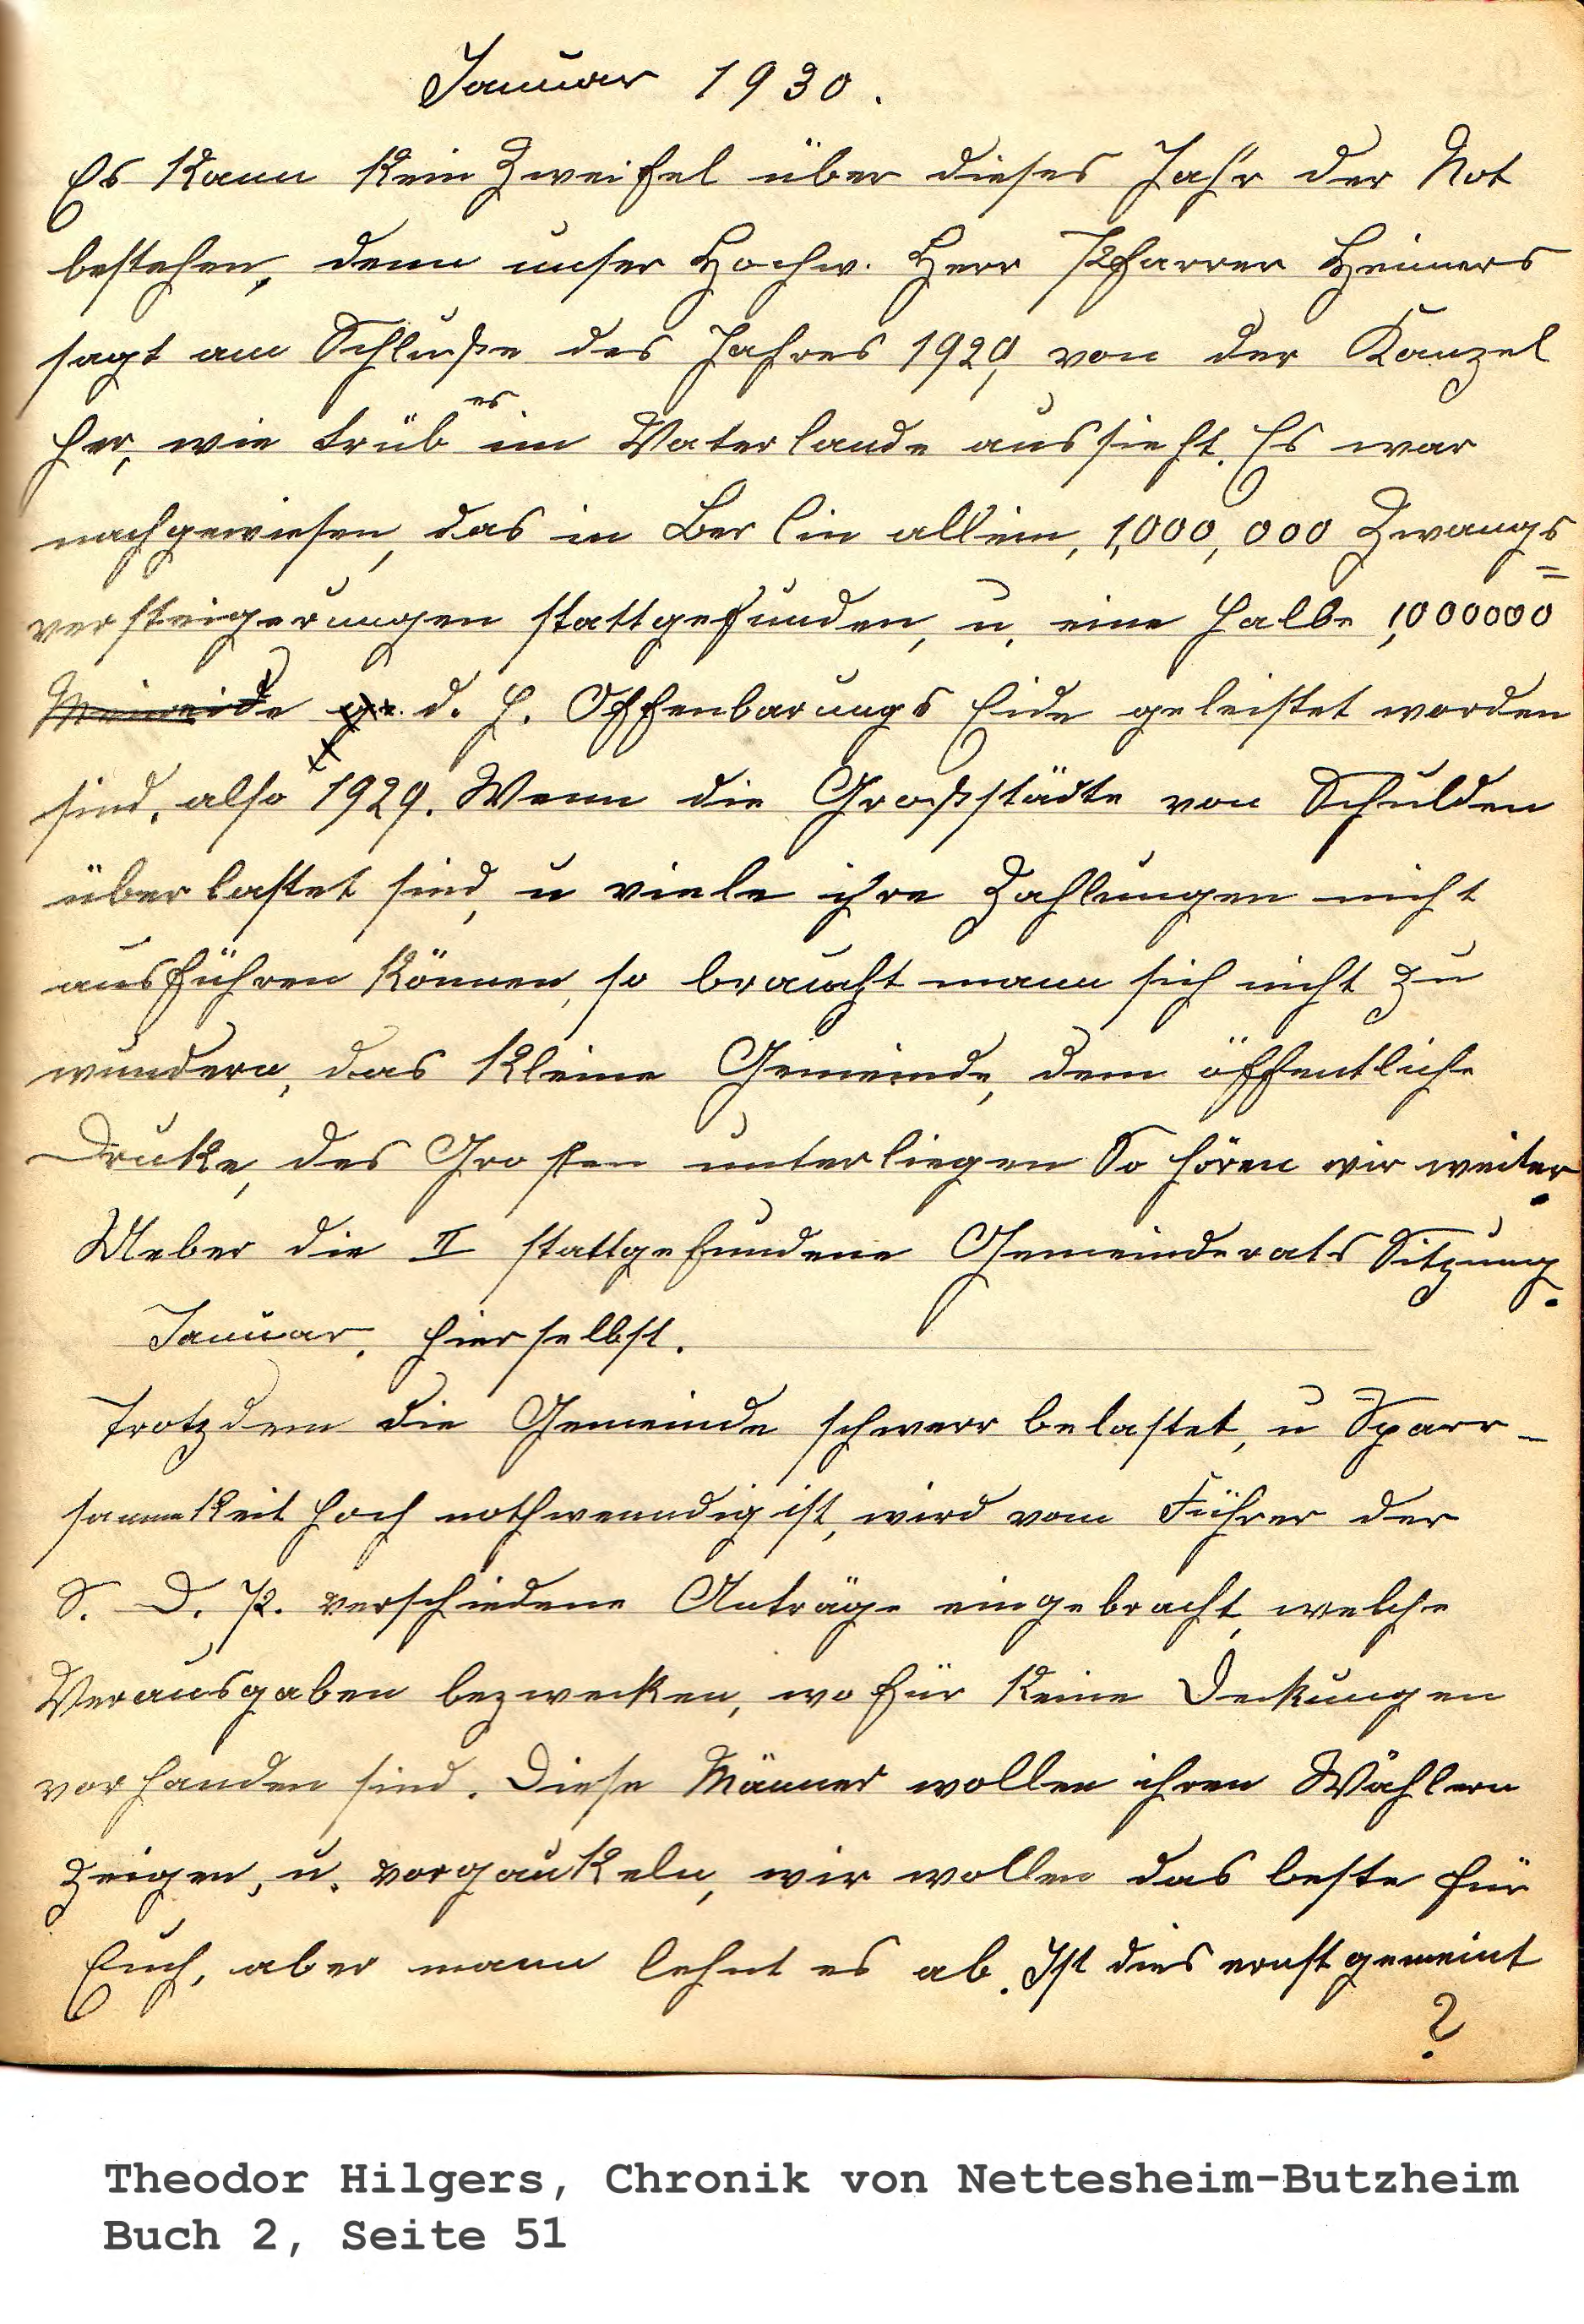 Januar 1930.
Es kann kein Zweifel über dieses Jahr der Not
bestehen, denn unser Hochw. Herr Pfarrer Heimers
sagt am Schluße des Jahres 1929, von der Kanzel
her, wie trüb es im Vaterlande aussieht. Es war
nachgewiesen, das in Berlin allein, 1,000,000 Zwangs=
versteigerungen stattgefunden, u. eine halbe 1,000000
Meineide ge. d. h. Offenbarungs Eide geleistet worden
sind, also 1929. Wenn die Großstädte von Schulden
überlastet sind, u viele ihre Zahlungen nicht
ausführen können, so braucht mann sich nicht zu
wundern, das kleine Gemeinde, dem öffentliche
Drucke, des Großen unterliegen So hören wir weiter.
Ueber die II stattgefundene Gemeinderats Sitzung.
Januar. hierselbst.
Trotzdem die Gemeinde schwerr belastet, u Sparr-
sammkeit hoch nothwenndig ist, wird vom Führer der
S. D. P. verschiedene Anträge eingebracht, welche
Verausgaben bezwecken, wofür keine Deckungen
vorhanden sind. Diese Männer wollen ihren Wählern
zeigen, u. vorgaukeln, wir wollen das beste für
Euch, aber mann lehnt es ab. Ist dies ernst gemeint
?
Theodor Hilgers, Chronik von Nettesheim-Butzheim
Buch 2, Seite 51